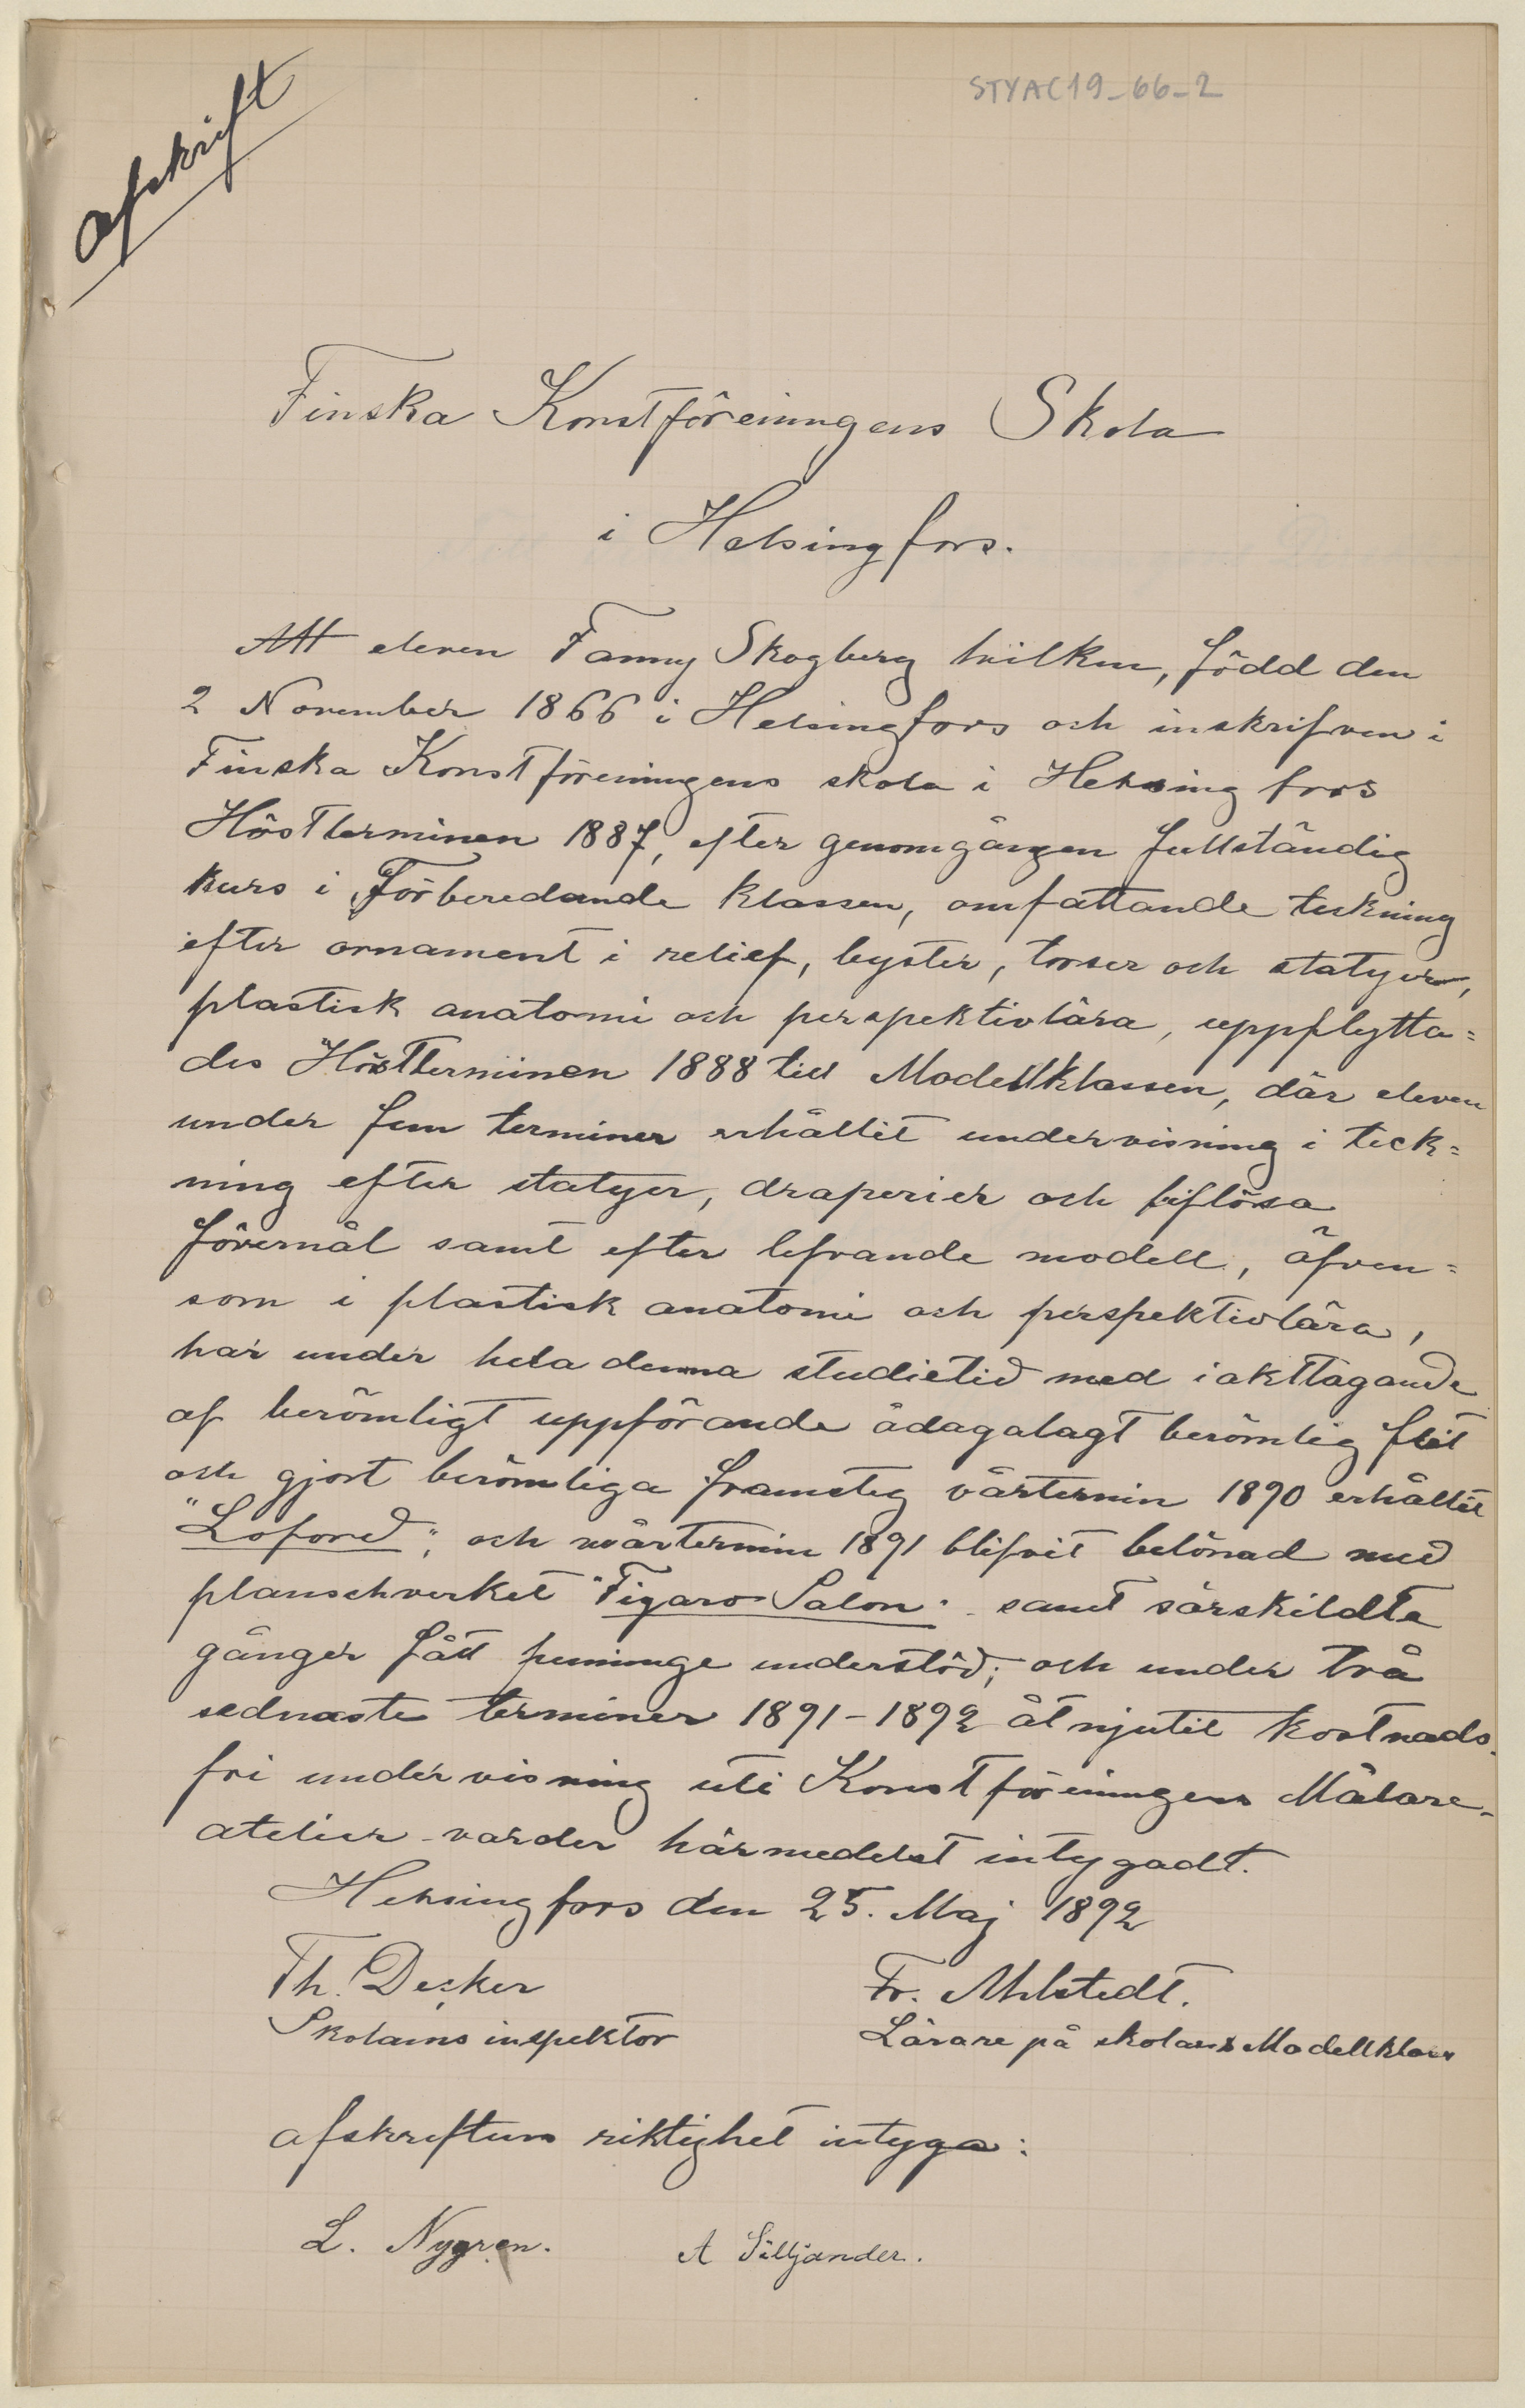 STYAC19_66_2
Afskrift
Finska Konstföreningens Skola
i Helsingfors.
Att eleven Fanny Skogberg hvilken, född den
2 November 1866 i Helsingfors och inskrifven i
Finska Konstföreningens skola i Helsingfors
Höstterminen 1887, efter genomgången fullständig
kurs i Förberedande klassen, omfattande teckning
efter ornament i relief, byster, torser och statyer,
plastisk anatomi och perspektivlära, uppflytta=
des Höstterminen 1888 till Modellklassen, där eleven
under fem terminer erhållit undervisning i teck=
ning efter statyer, draperier och liflösa
föremål samt efter lefvande modell, äfven=
som i plastisk anatomi och perspektivlära,
har under hela denna studietid med iakttagande
af berömligt uppförande ådagalagt berömlig flit
och gjort berömliga framsteg vårtermin 1890 erhållit
"Loford", och vårtermin 1891 blifvit belönad med
planschverket "Figaro Salon" samt särskildta
gånger fått penninge understöd; och under två
sednaste terminer 1891-1892 åtnjutit kostnads-
fri undervisning uti Konstföreningens Målare-
atelier varder härmedelst intygadt.
Helsingfors den 25. Maj 1892
Th. Decker
Fr. Ahlstedt.
Skolans inspektor
Lärare på skolans Modellklass
afskriftens riktighet intyga:
L. Nygren.
A Silljander.